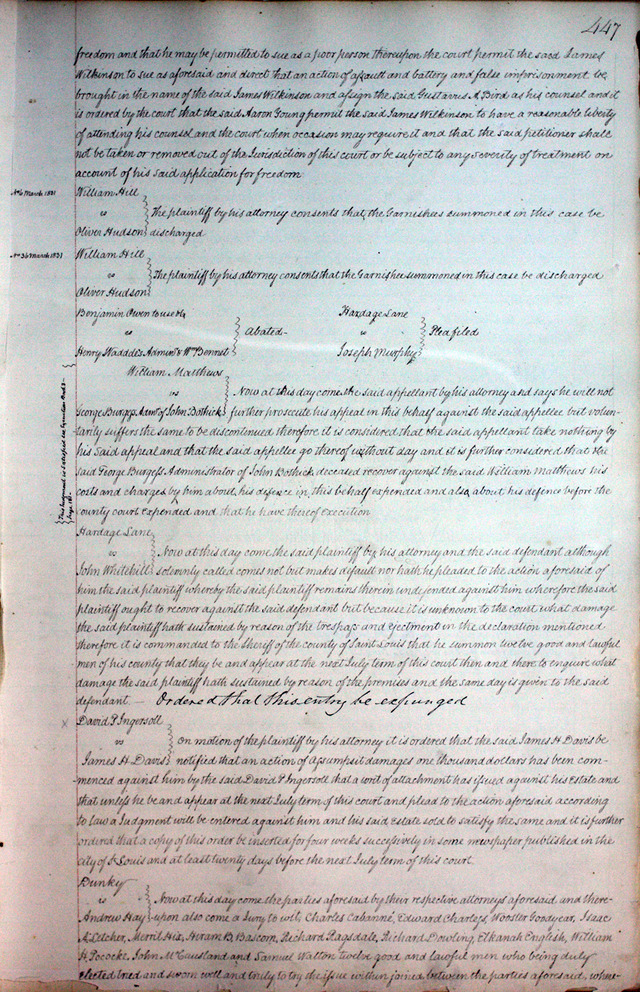 447
freedom and that he may be permitted to sue as a poor person thereupon the court permit the said James
Wilkinson to sue as aforesaid and direct that an action of assault and battery and false imprisonment be
brought in the name of the said James Wilkinson and assign the said Gustavus A Bird as his counsel and it
is ordered by the court that the said Aaron Young permit the said James Wilkinson to have a reasonable liberty
of attending his counsel and the court when occasion may require it and that the said petitioner shall
not be taken or removed out of the Jurisdiction of this court or be subject to any severity of treatment on
account of his said application for freedom
March 1831
William Hill
vs
The plaintiff by his attorney consents that the Garnishees summoned in this case be
Oliver Hudson discharged
No 36 March 1831
William Hill
vs
The plaintiff by his attorney consents that the Garnishee summoned in this case be discharged
Oliver Hudson
Benjamin Owen to use &c
vs Abated
Henry Admr & Wm Bennet
Hardage Lane
vs Plea filed
Joseph Murphy
William Matthews
vs Now at this day comes the said appellant by his attorney and says he will not
George Burgess Admr of John Bothick further prosecute his appeal in this behalf against the said appellee but volun-
tarily suffers the same to be discontinued therefore it is considered that the said appellant take nothing by
his said appeal and that the said appellee go thereof without day and it is further considered that the
said George Burgess Administrator of John Bothick deceased recover against the said William Matthews his
costs and charges by him about his defence in this behalf expended and also about his defence before the
county court expended and that he have thereof execution
This Judgment is Satisfied see Execution
Page
Hardage Lane
vs Now at this day come the said plaintiff by his attorney and the said defendant although
John Whitehill solemnly called comes not but makes default nor hath he pleaded to the action aforesaid of
him the said plaintiff whereby the said plaintiff remains therein undefended against him wherefore the said
plaintiff ought to recover against the said defendant but because it is unknown to the court what damage
the said plaintiff hath sustained by reason of the trespass and ejectment in the declaration mentioned
therefore it is commanded to the Sheriff of the county of Saint Louis that he summon twelve good and lawful
men of his county that they be and appear at the next July term of this court then and there to enquire what
damage the said plaintiff hath sustained by reason of the premises and the same day is given to the said
defendant — Ordered that this entry be expunged
x David P Ingersoll
vs on motion of the plaintiff by his attorney it is ordered that the said James H Davis be
James H Davis notified that an action of assumpsit damages one thousand dollars has been com-
menced against him by the said David P Ingersoll that a writ of attachment has issued against his Estate and
that unless he be and appear at the next July term of this court and plead to the action aforesaid according
to law a Judgment will be entered against him and his said Estate sold to satisfy the same and it is further
ordered that a copy of this order be inserted for four weeks successively in some newspaper published in the
city of St Louis and at least twenty days before the next July term of this court
Dunky
vs Now at this day come the parties aforesaid by their respective attorneys aforesaid and there-
Andrew Hay upon also come a Jury to wit, Charles Cabanné, Edward Charless, Wooster Goodyear, Isaac
A Letcher, Merril Hix, Hiram B. Bascom, Richard Ragsdale, Richard Dowling, Elkanah English, William
H. Pococke, John McCausland and Samuel Walton twelve good and lawful men who being duly
elected tried and sworn well and truly to try the issue within joined between the parties aforesaid, where-